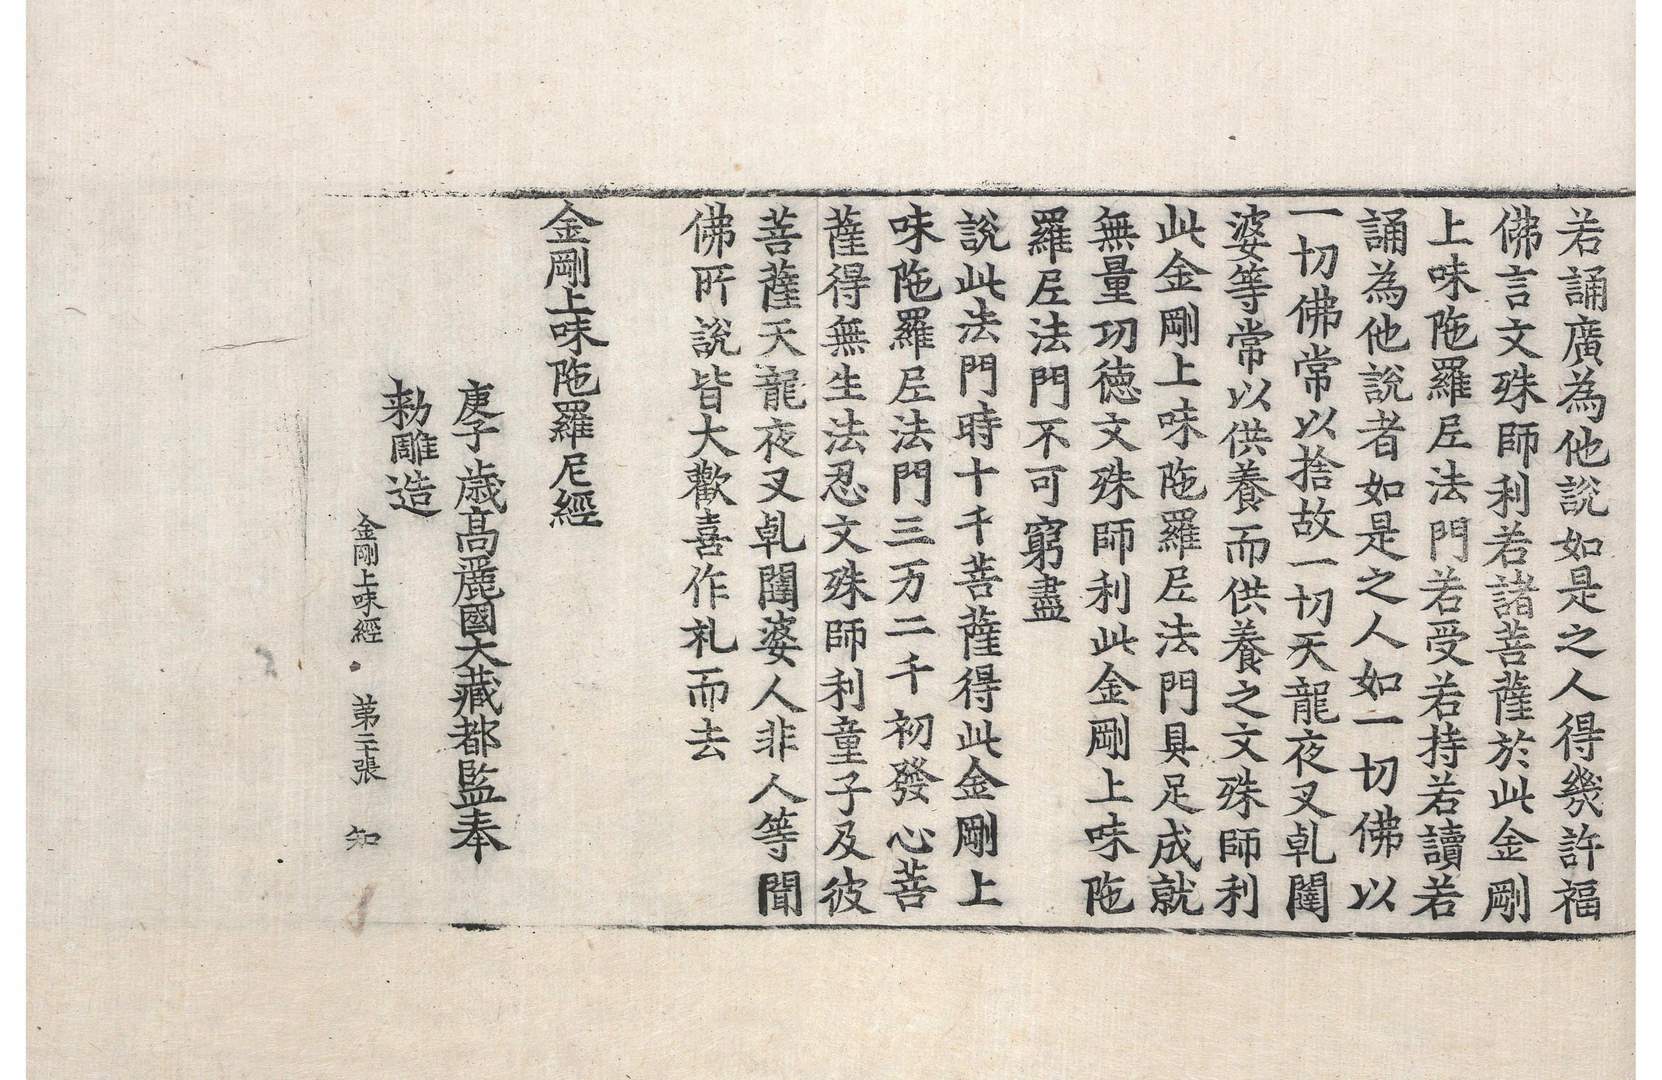 若誦廣為他說如是之人得幾許福
佛言文殊師利若諸菩薩於此金剛
上味陁羅𡰱法門若受若持若讀若
誦為他說者如是之人如一切佛以
一切佛常以捨故一切天龍夜叉乹闥
婆等常以供養而供養之文殊師利
此金剛上味陁羅𡰱法門具足成就
無量功德文殊師利此金剛上味陁
羅𡰱法門不可窮盡
說此法門時十千菩薩得此金剛上
味陁羅𡰱法門三万二千初發心菩
薩得無生法忍文殊師利童子及彼
菩薩天龍夜叉乹闥婆人非人等聞
佛所說皆大歡喜作礼而去
金剛上味陁羅尼經
庚子歲高麗國大藏都監奉
勑雕造
金剛上味經 第二十張 知